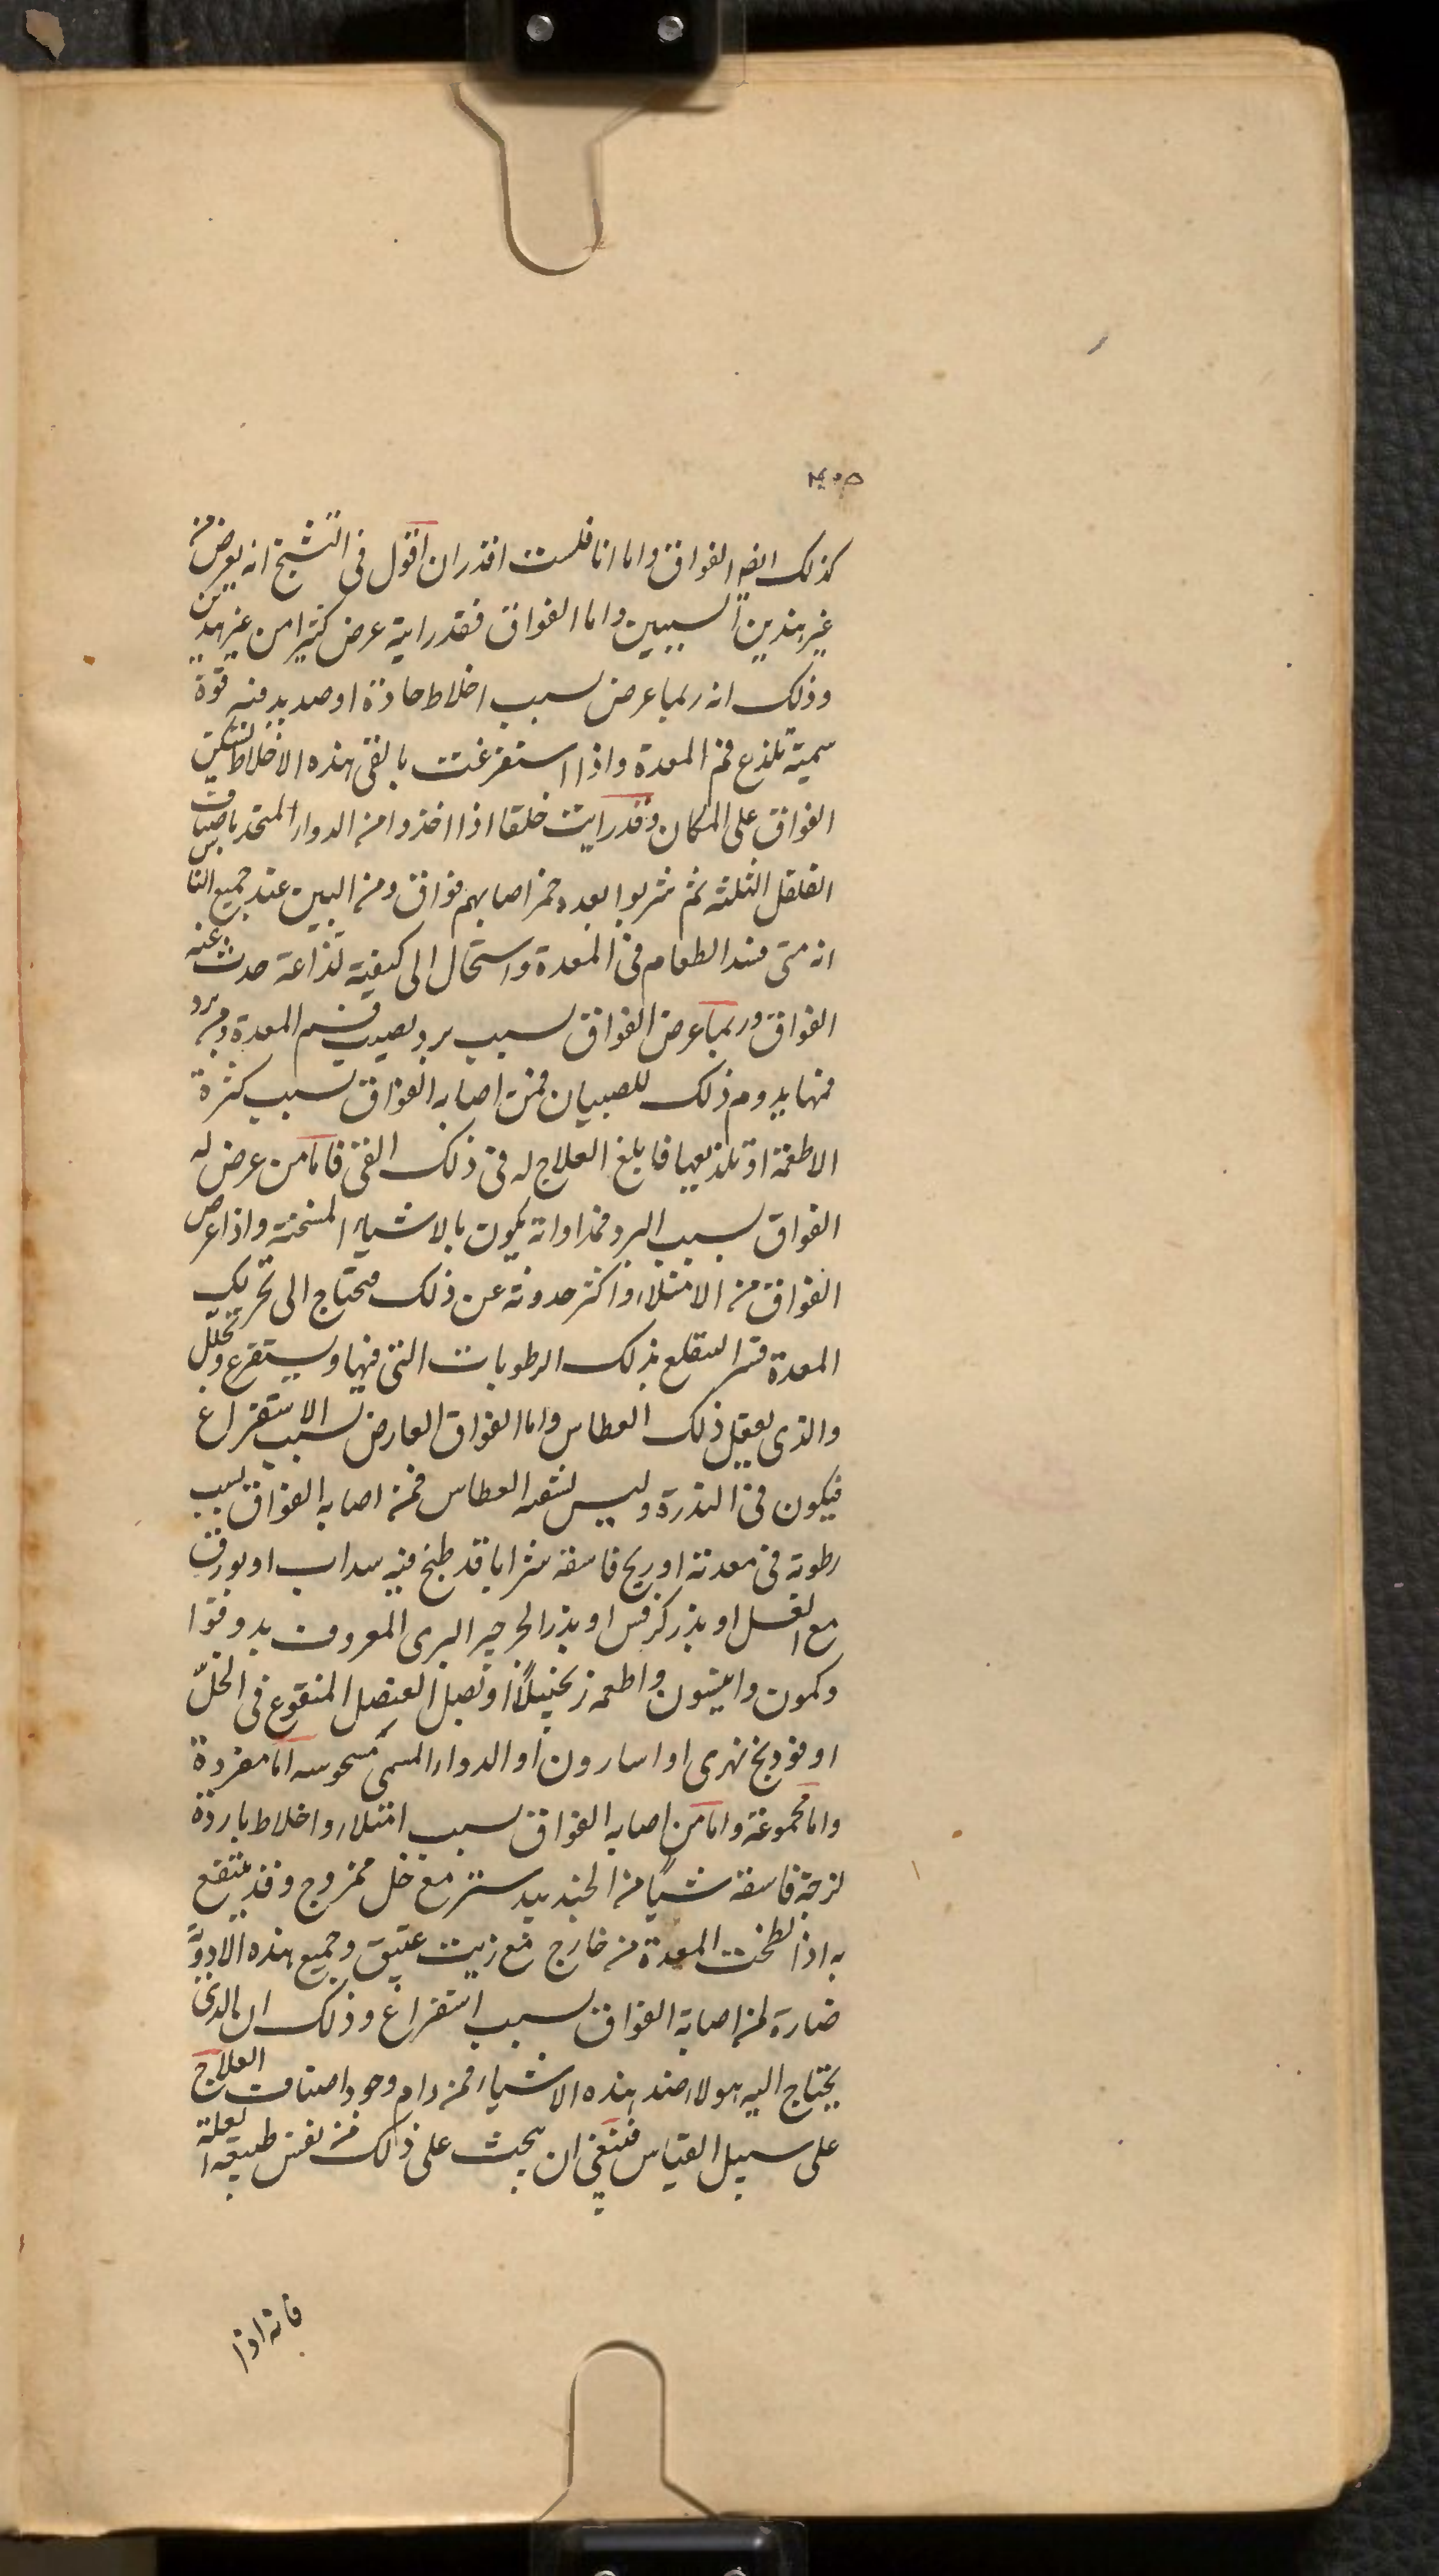 كذلك ايضا الفواق واما انا فلست اقدر ان اقول فى التشنج انه يعرض من
غير هذين السببين واما الفواق فقد رايته عرض كثيرا من غير هذين
وذلك انه ربما عرض بسبب اخلاط حادة او صديد فيه قوة
سمية تلذع فم المعدة واذا استفرغت بالقى هذه الاخلاط سكن
الفواق على المكان وقد رايت خلقا اذا اخذوا من الدواء المتخذ باصناف
الفلفل الثلثه ثم شربوا بعده خمر اصابهم فواق ومن البين عند جميع الناس
انه متى فسد الطعام فى المعدة واستحال الى كيفية لذاعة حدث عنه
الفواق وربما عرض الفواق بسبب برد يصيب فم المعدة ومن برد
فمها يدوم ذلك للصبيان فمن اصابه الفواق بسبب كثرة
الاطعمة او تلذيعها فابلغ العلاج له فى ذلك القى فاما من عرض له
الفواق بسبب البرد فمداواته يكون بالاشياء المسخنة واذا عرض
الفواق من الامتلاء واكثر حدوثه عن ذلك فيحتاج الى تحريك
المعدة قسرا لتقلع بذلك الرطوبات التى فيها ويستفرغ وتحلل
والذى يفعل ذلك العطاس واما الفواق العارض بسبب الاستفراغ
فيكون فى الندرة وليس يشفيه العطاس فمن اصابه الفواق بسبب
رطوبة فى معدته او ريح فاسقه شرابا قد طبخ فيه سداب او بورق
مع العسل او بذر كرفس او بذر الجزر البرى المعروف بدوقوا
وكمون وانيسون واطعمه زنجبيلا او بصل العنصل المنقوع فى الخل
او فودنج نهرى او اسارون او الدواء المسمى اما مفردة
واما مجموعة واما من اصابه الفواق بسبب امتلاء واخلاط باردة
لزجة فاسقه شيأ من الجندبيدستر مع خل ممزوج وقد ينتفع
به اذا لطخت المعدة من خارج مع زيت عتيق وجميع هذه الادوية
ضارة لمن اصابه الفواق بسبب استفراغ وذلك ان الذى
يحتاج اليه هولاء ضد هذه الاشياء فمن رام وجود اصناف العلاج
على سبيل القياس فينبغى ان يبحث على ذلك من نفس طبيعة العلة
فانه اذا